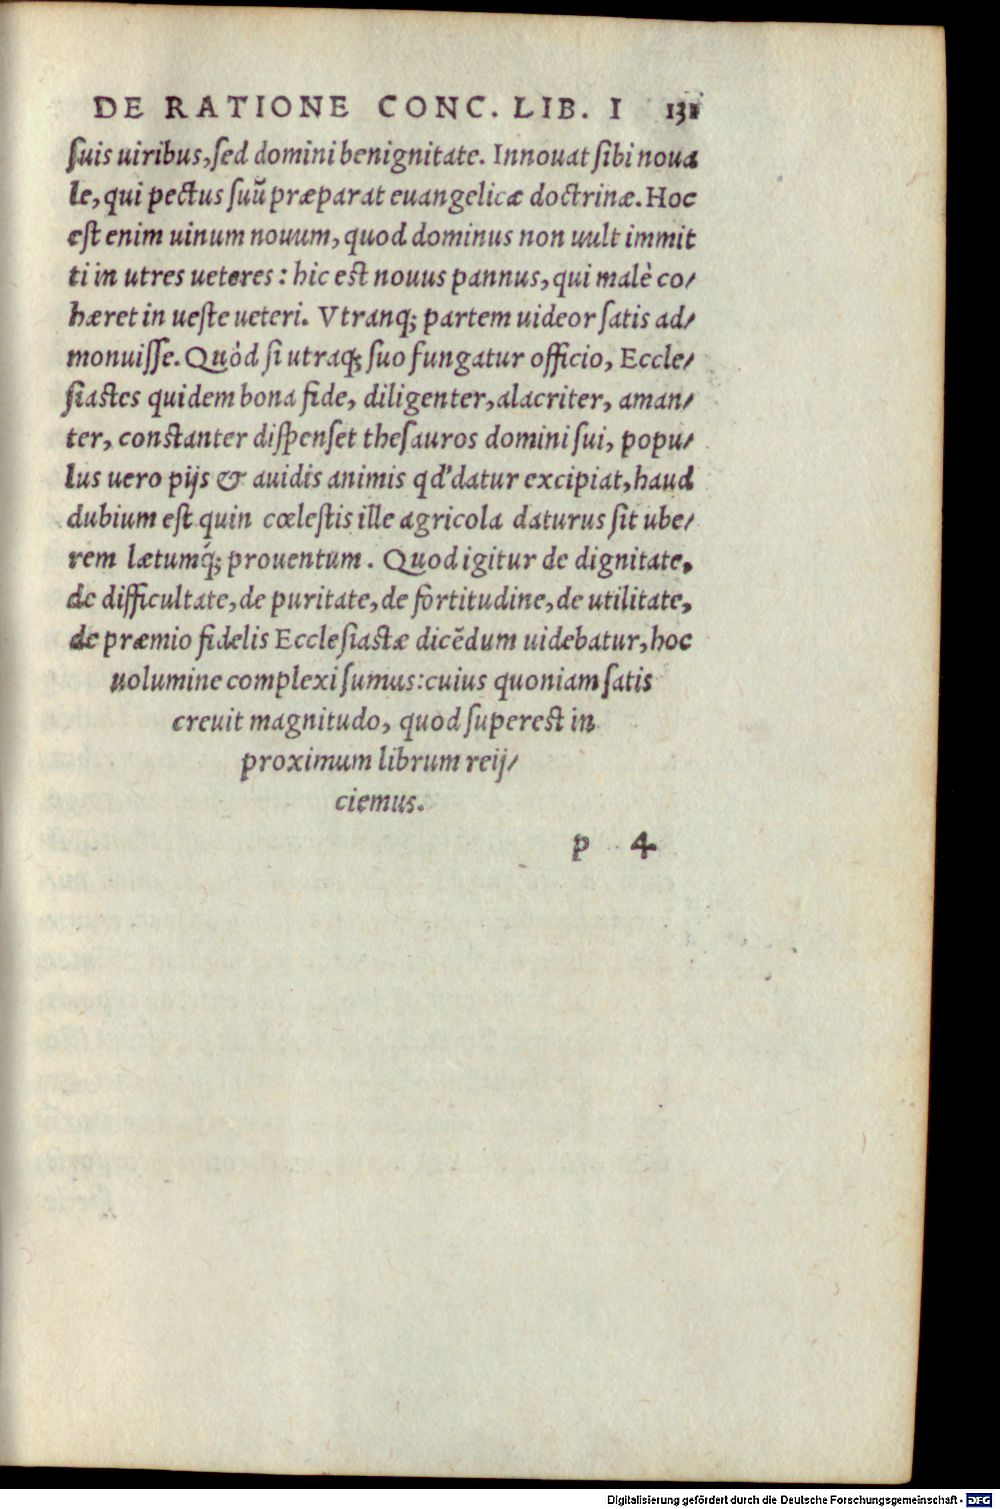 DE RATIONE CONC. LIB. I 131
ſuis uiribus, ſed domini benignitate. Innouat ſibi noua
le, qui pectus ſuũ præparat euangelicæ doctrinæ. Hoc
eſt enim uinum nouum, quod dominus non uult immit
ti in utres ueteres : hic eſt nouus pannus, qui malè co/
hæret in ueſte ueteri. Vtranq; partem uideor ſatis ad/
monuiſſe. Quòd ſi utraq; ſuo fungatur officio, Eccle/
ſiastes quidem bona fide, diligenter, alacriter, aman/
ter, constanter diſpenſet theſauros domini ſui, popu/
lus uero pijs & auidis animis qd' datur excipiat, haud
dubium eſt quin cœleſtis ille agricola daturus ſit ube/
rem lætumq́; prouentum. Quod igitur de dignitate,
de difficultate, de puritate, de fortitudine, de utilitate,
de præmio fidelis Eccleſiastæ dicẽdum uidebatur, hoc
uolumine complexi ſumus: cuius quoniam ſatis
creuit magnitudo, quod ſuperest in
proximum librum reij/
ciemus.
p 4
Digitalisierung gefördert durch die Deutsche Forschungsgemeinschaft - DFG